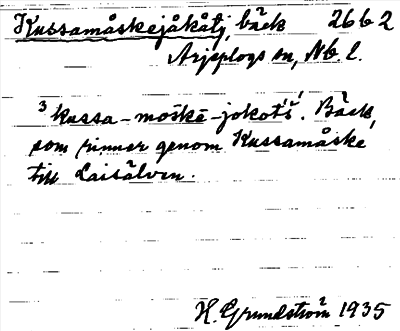 Kussamåskejåkåtj, bäck 26 b 2
Arjeplogs sn, Nb. l.
3 kussa-moskē-jokot's'. Bäck,
som rinner genom Kussamåske
till Laisälven.
H. Grundström 1935